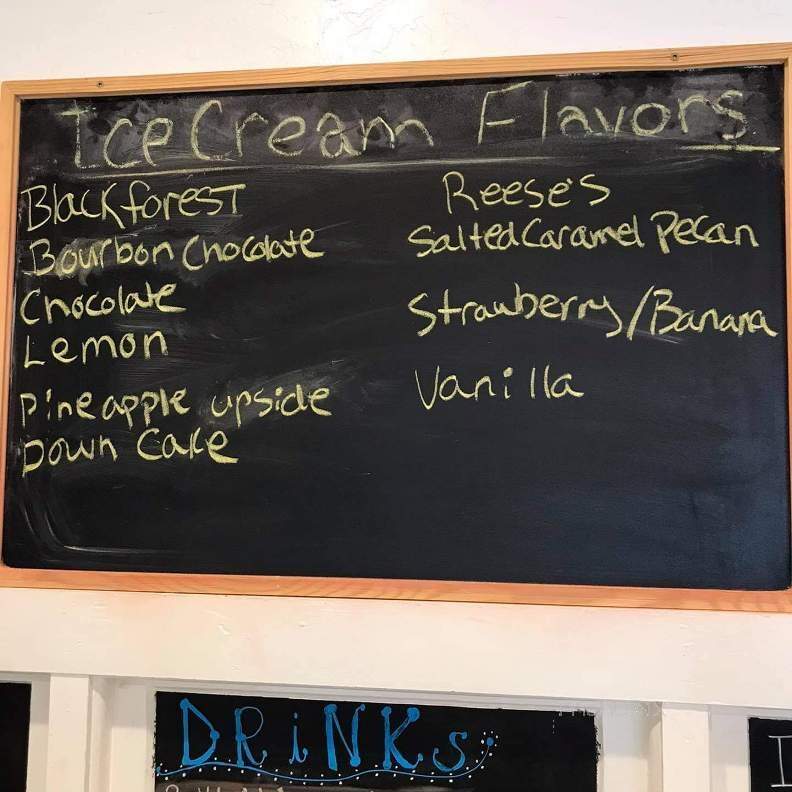 Ice Cream Flavors
Blackforest
Bourbon Chocolate
Chocolate
Lemon
Pineapple upside
Down Cake
Reese's
Salted Caramel Pecan
Strawberry/Banana
Vanilla
DRiNKs